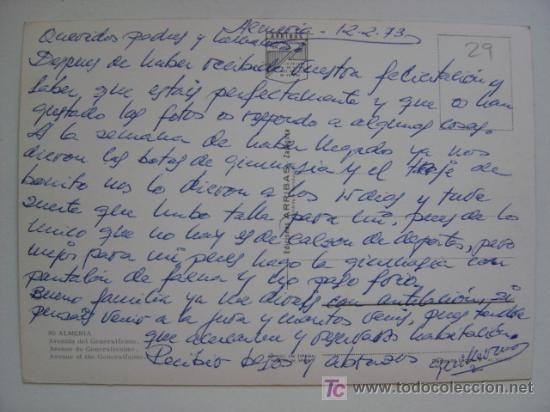 Almeria - 12-2-73
29
Queridos padres y hermanos
Despues de haber recibido vuestra felicitación y
saber que estais perfectamente y que os han
gustado las fotos os respondo a algunas cosas.
A la semana de haber llegado ya nos
dieron las botas de gimnasia y el traje de
bonito nos lo dieron a los días y tube
suerte que hubo talla para mi, pues de lo
unico que no hay es de calzon de deportes, pero
mejor para mi pues hago la gimnasia con
pantalón de faena y no paso frio
Bueno familia ya me direis con antelación, si
pensais venir a la jura y cuantos venis, pues tendre
que y reservaros habitación.
Recibir besos y abrazos
Ediciones ARRIBAS. Zaragoza
80 ALMERIA
Avenida del Generalísimo.
Avenue du Generalissime.
Avenue of the Generalissimo.
todocoleccion